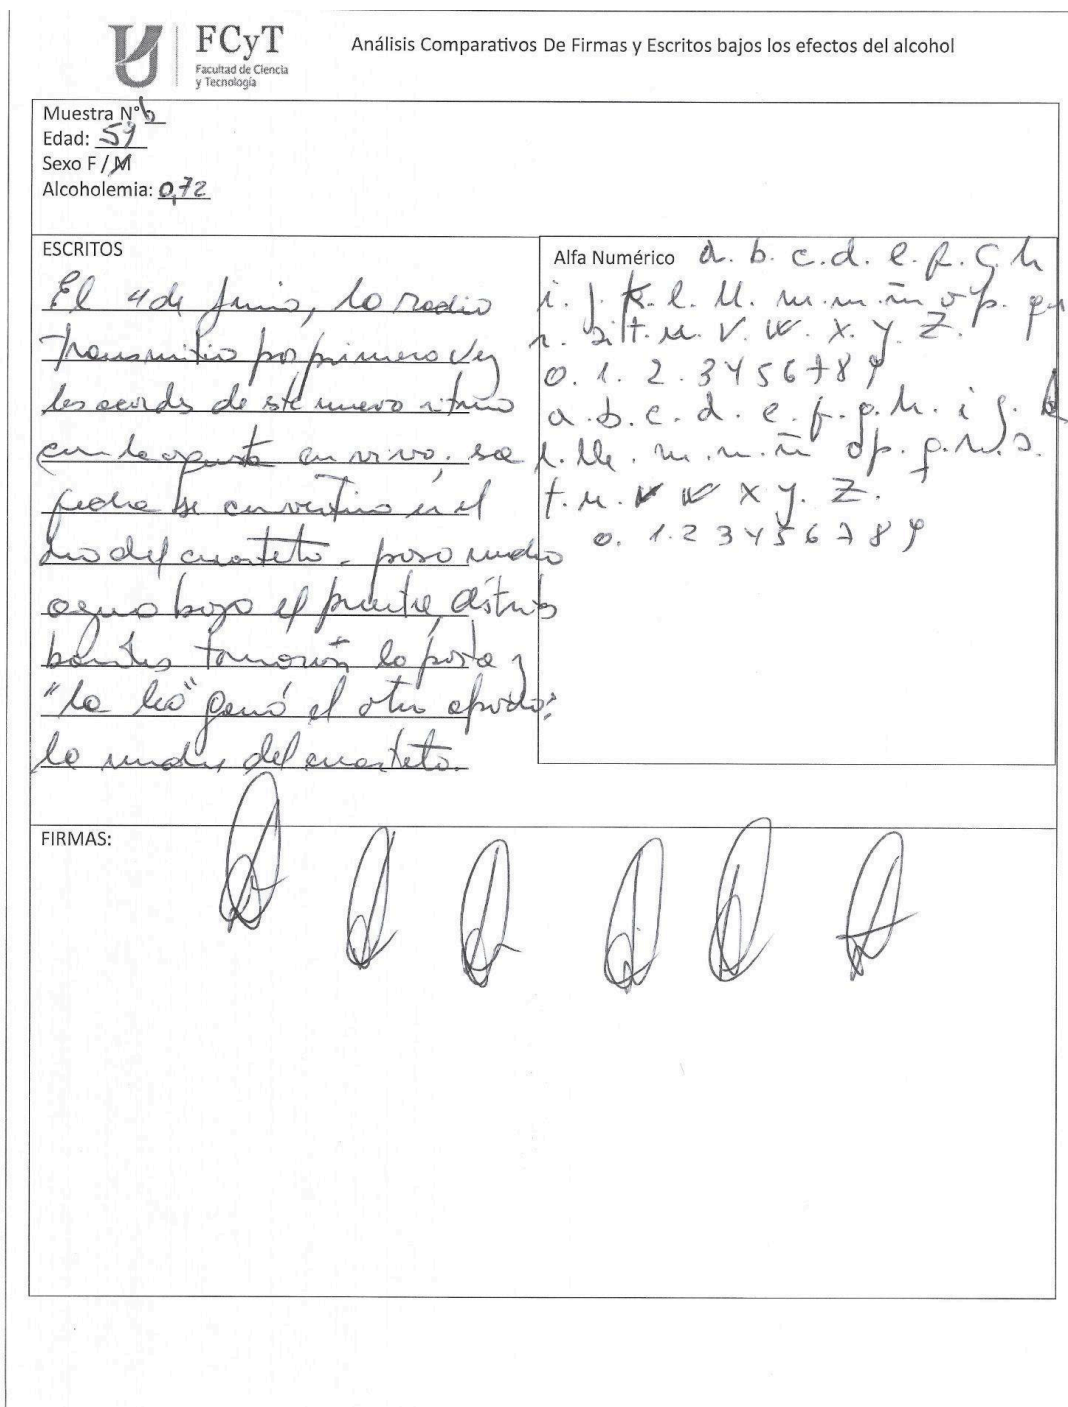 FCyT
Facultad de Ciencia
y Tecnología
Análisis Comparativos De Firmas y Escritos bajos los efectos del alcohol
Muestra N° 6
Edad: 59
Sexo F / M
Alcoholemia: 0,72
ESCRITOS
El 4 de Junio, la radio
transmitio por primera vez
los acords de ste nuevo ritmo
con la orquesta en vivo. sa
fecha se convirtio en el
dia del cuarteto. paso mucha
agua bajo el puente, distintas
bandas tomaron la posta y
"la leo" ganó el otro apodo:
la madre del cuarteto.
Alfa Numérico a. b. c. d. e. f. g. h
i. j. k. l. ll. m. n. ñ o p. q
r. s. t. u. v. w. x. y. z.
0. 1. 2. 3 4 5 6 7 8 9
a. b. c. d. e. f. g. h. i j. k
l. ll. m. n. ñ o p. q. r. s.
t. u. v w x y. z.
0. 1. 2 3 4 5 6 7 8 9
FIRMAS: